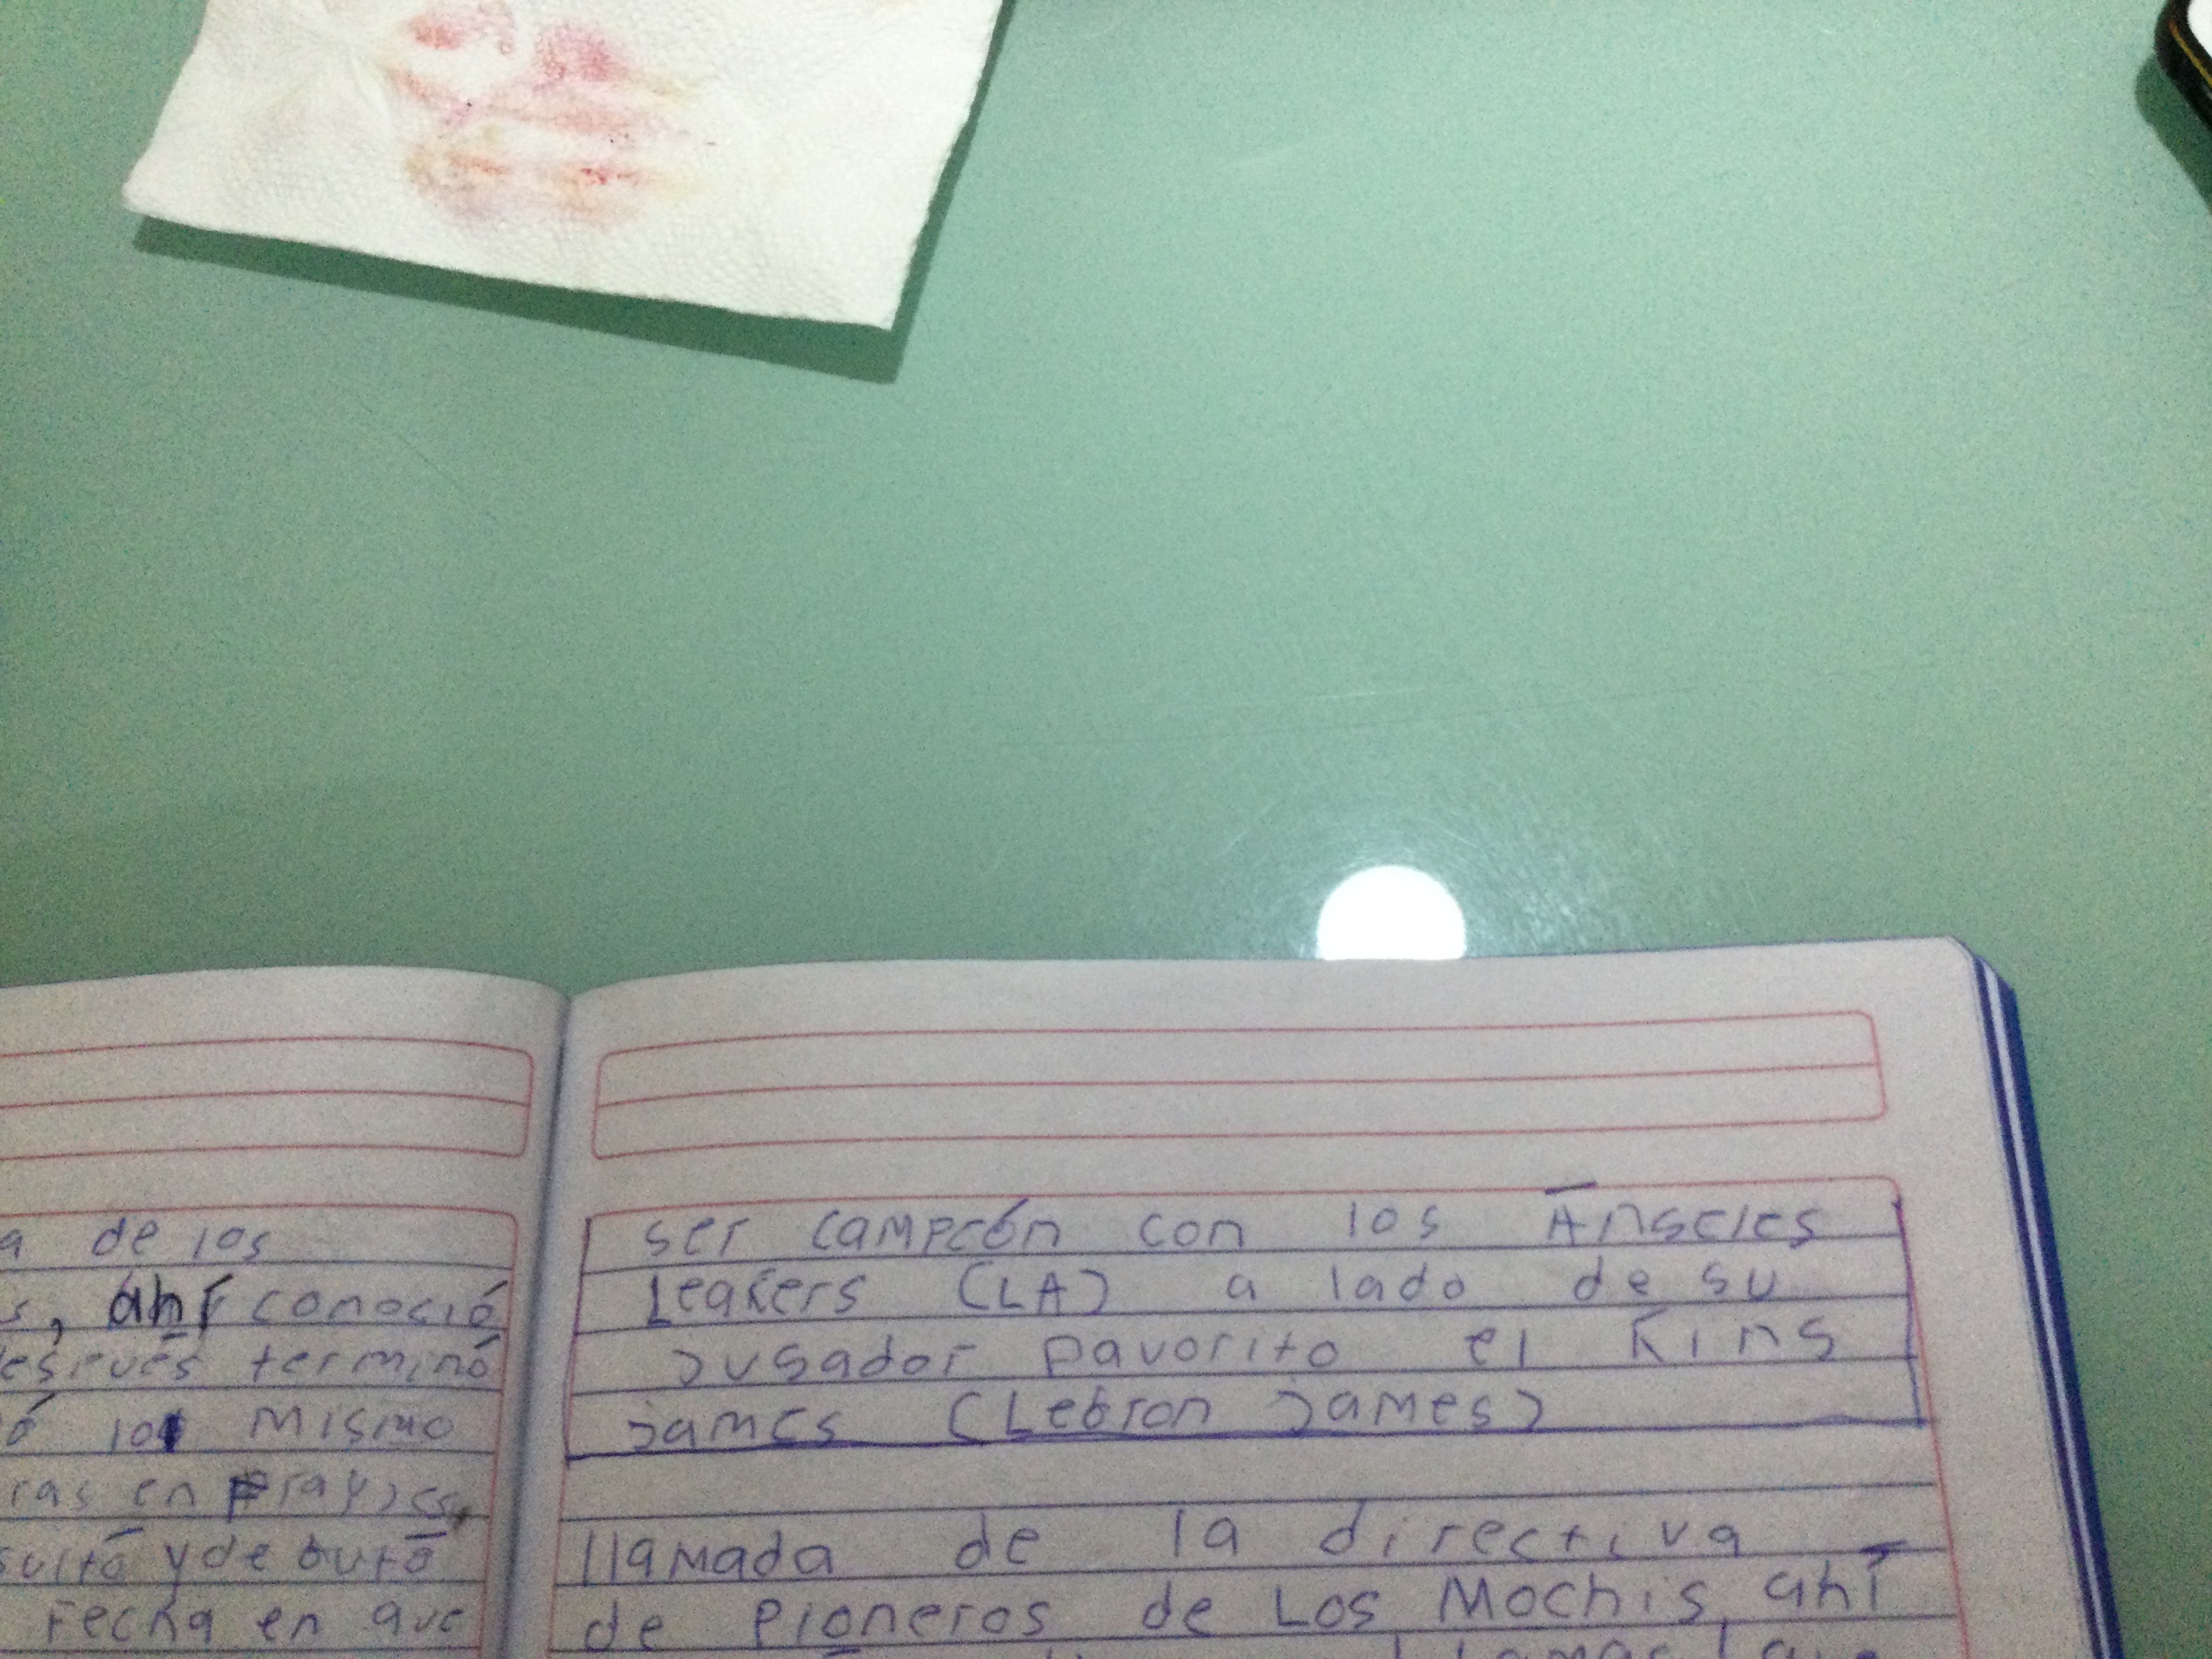 a de los
s, ahí conoció
después terminó
ó lo mismo
ras en playses,
sultó y debutó
Fecha en que
ser campeón con los Ángeles
Leakers (LA) a lado de su
jugador favorito el King
james (Lebron james)
llamada de la directiva
de pioneros de Los Mochis, ahí